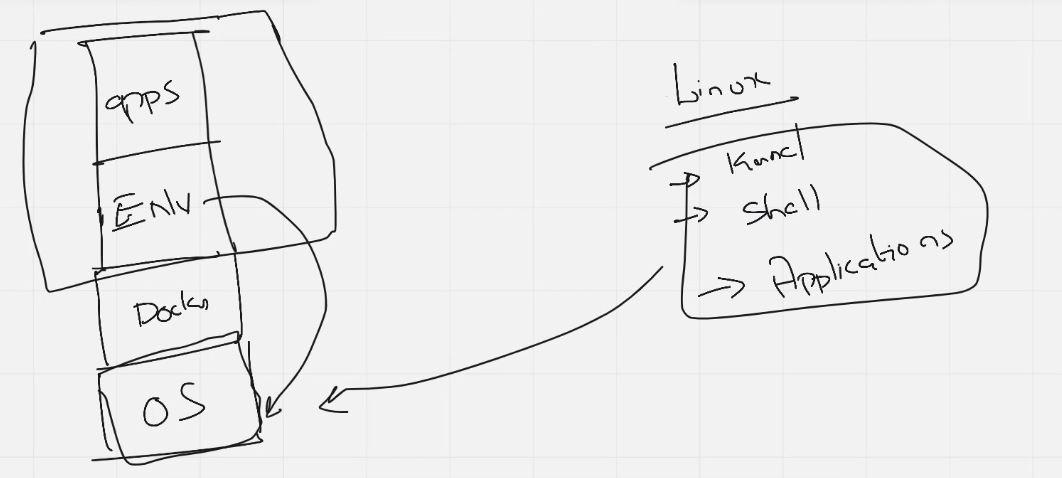 apps
Env
Docker
OS
Linux
Kernel
Shell
Applications